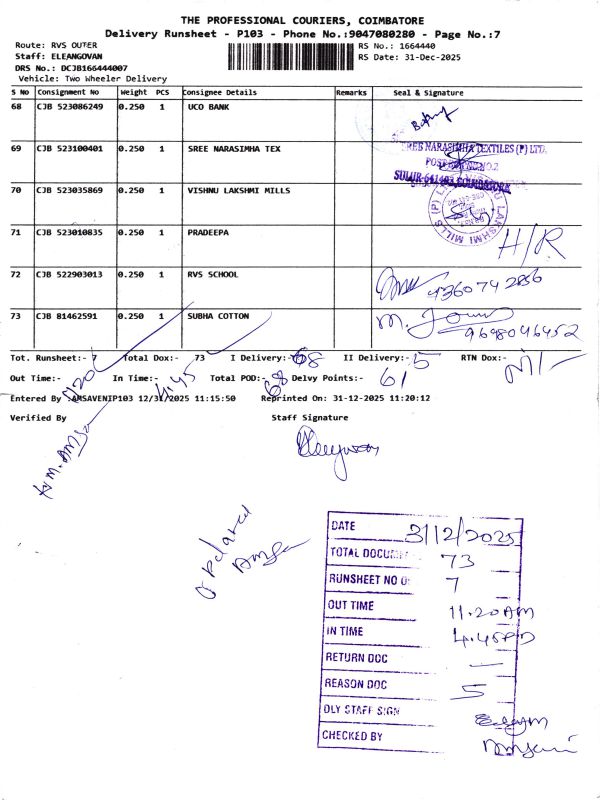 THE PROFESSIONAL COURIERS, COIMBATORE
Delivery Runsheet - P103 - Phone No.:9047080280 - Page No.:7
Route: RVS OUTER RS No.: 1664440
Staff: ELEANGOVAN RS Date: 31-Dec-2025
DRS No.: DCJB166444007
Vehicle: Two Wheeler Delivery
S No Consignment No Weight PCS Consignee Details Remarks Seal & Signature
68 CJB 523086249 0.250 1 UCO BANK
69 CJB 523100401 0.250 1 SREE NARASIMHA TEX
SREE NARASIMHA TEXTILES (P) LTD.
POST BOX NO.2
SULUR-641402, COIMBATORE
70 CJB 523035869 0.250 1 VISHNU LAKSHMI MILLS
LAKSHMI MILLS (P)
71 CJB 523010835 0.250 1 PRADEEPA H/R
72 CJB 522903013 0.250 1 RVS SCHOOL 9360742856
73 CJB 81462591 0.250 1 SUBHA COTTON M.
9698046452
Tot. Runsheet:- 7 Total Dox:- 73 I Delivery:- 68 II Delivery:- 5 RTN Dox:- Nil
Out Time:- 11.20 In Time:- 4.45 Total POD:- 68 Delvy Points:- 61
Entered By :AMSAVENIP103 12/31/2025 11:15:50 Reprinted On: 31-12-2025 11:20:12
Verified By Staff Signature
DATE 31/12/2025
TOTAL DOCUM 73
RUNSHEET NO 7
OUT TIME 11.20AM
IN TIME 4.45PM
RETURN DOC —
REASON DOC 5
DLY STAFF SIGN
CHECKED BY